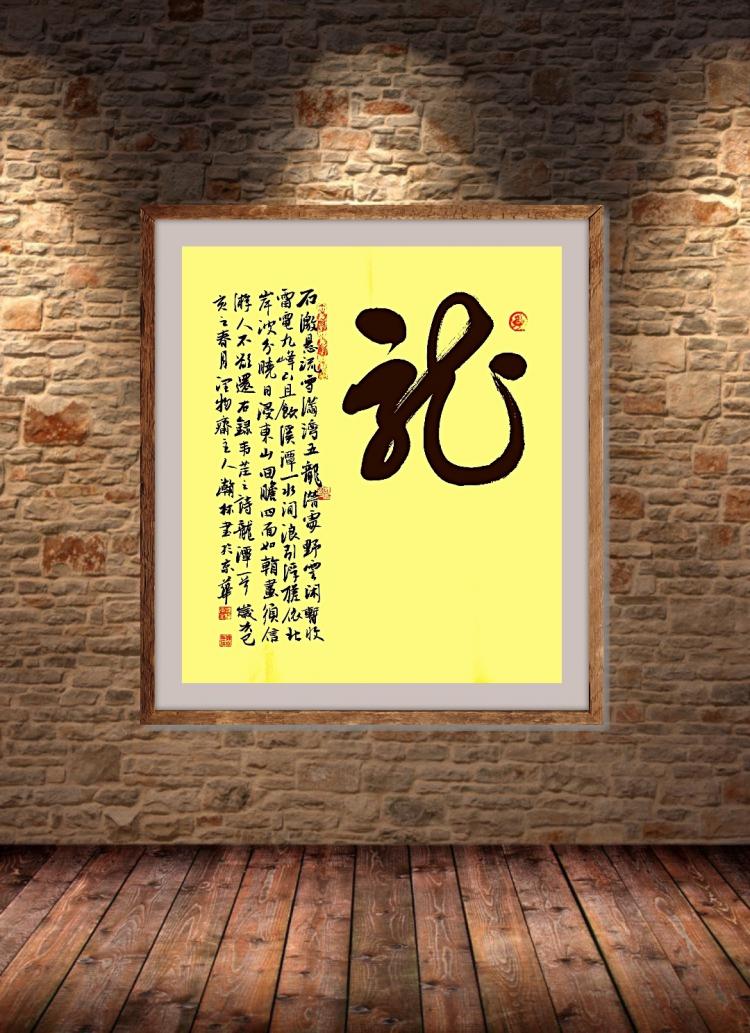 龍
石激懸流雪滿灣五龍潛處野雲闲暫收
雷電九峰下且飲溪潭一水间浪引浮槎依北
岸波分曉日浸東山回瞻四面如畫須信
游人不欲還右録韦莊之詩龍潭一首歲次己
亥之春月润物齋主人瀚林書於京華